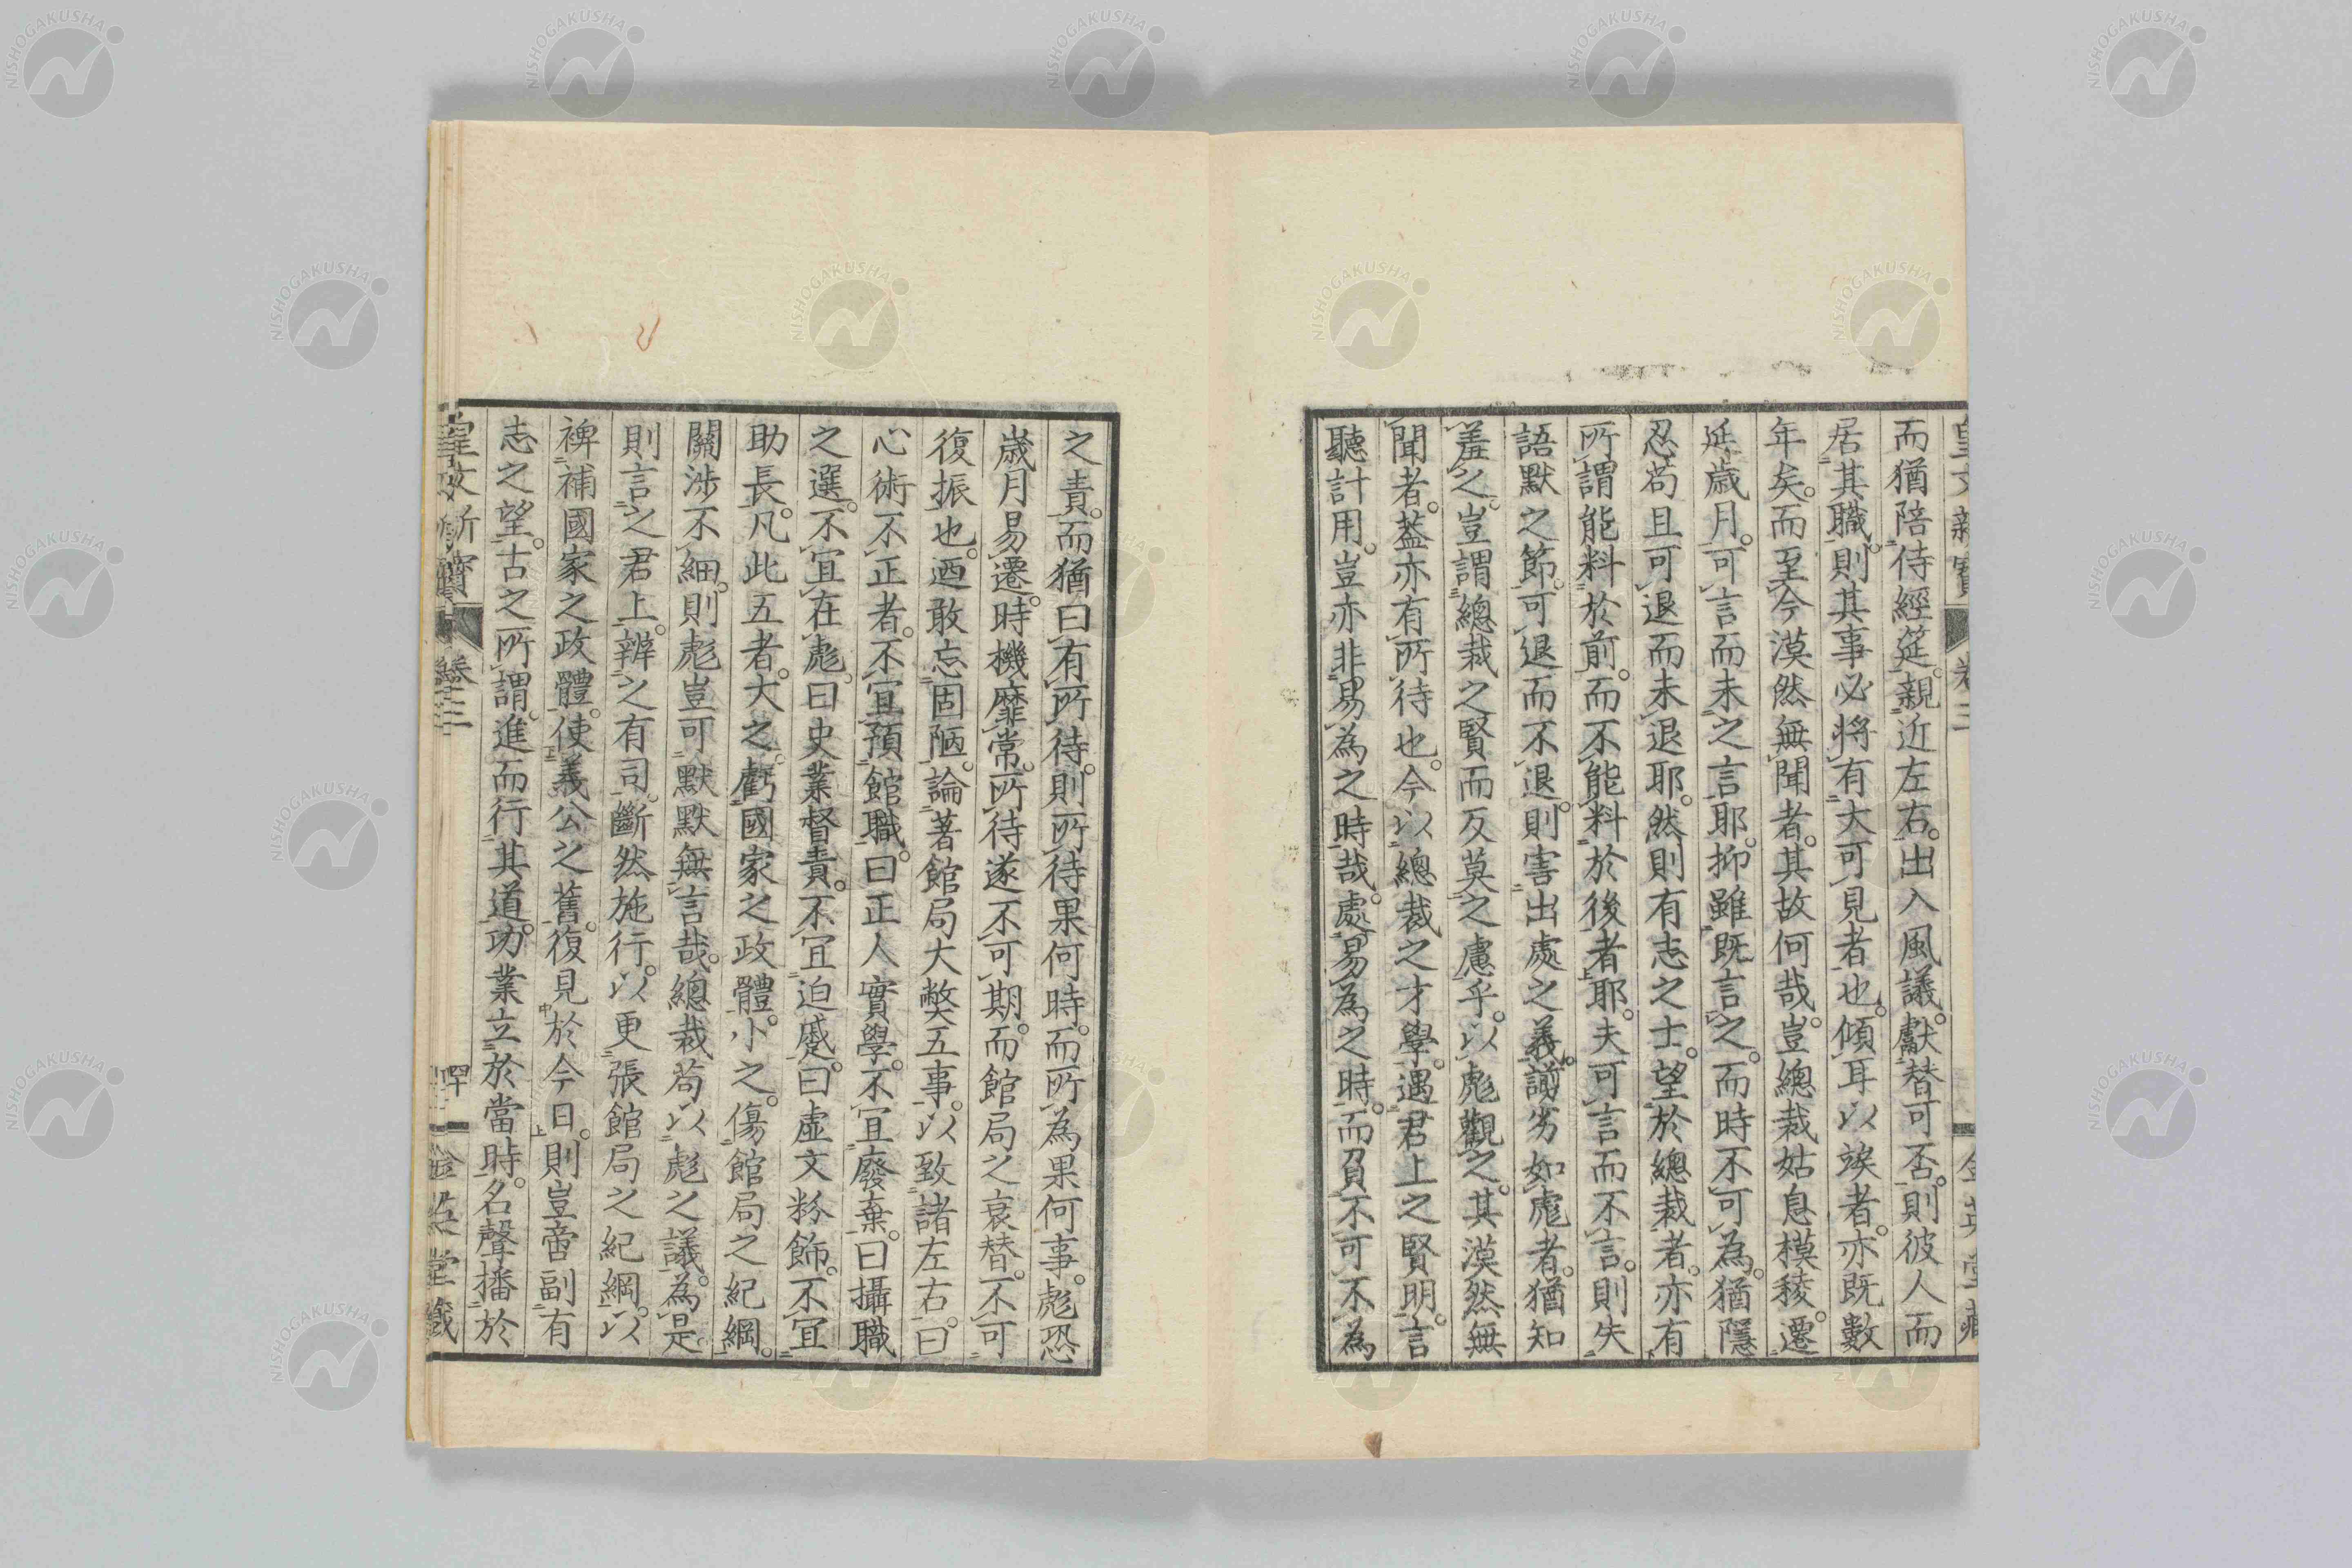 而猶陪侍經筵。親近左右。出入風議。獻替可否。則彼人而
居其職。則其事必將有大可見者也。傾耳以竢者。亦既數
年矣。而至今漠然無聞者。其故何哉。豈總裁姑息模稜。遷
延歲月。可言而未之言耶。抑雖既言之。而時不可為。猶隱
忍苟且可退而未退耶。然則有志之士。望於總裁者。亦有
所謂能料於前。而不能料於後者耶。夫可言而不言。則失
語默之節。可退而不退。則害出處之義。謭劣如彪者。猶知
羞之。豈謂總裁之賢而反莫之慮乎。以彪觀之。其漠然無
聞者。蓋亦有所待也。今以總裁之才學。遇君上之賢明。言
聽計用。豈亦非易為之時哉。處易為之時。而負不可不為
之責。而猶曰有所待。則所待果何時。而所為果何事。彪恐
歲月易遷。時機靡常。所待遂不可期。而館局之衰替。不可
復振也。迺敢忘固陋。論著館局大弊五事。以致諸左右。曰
心術不正者。不宜預館職。曰正人實學。不宜廢棄。曰攝職
之選。不宜在彪。曰史業督責。不宜迫蹙。曰虛文粉飾。不宜
助長。凡此五者。大之虧國家之政體。小之傷館局之紀綱。
關涉不細。則彪豈可默默無言哉。總裁苟以彪之議為是。
則言之君上。辨之有司。斷然施行。以更張館局之紀綱。以
裨補國家之政體。使義公之舊。復見於今日。則豈啻副有
志之望。古之所謂。進而行其道。功業立於當時。名聲播於
NISHOGAKUSHA